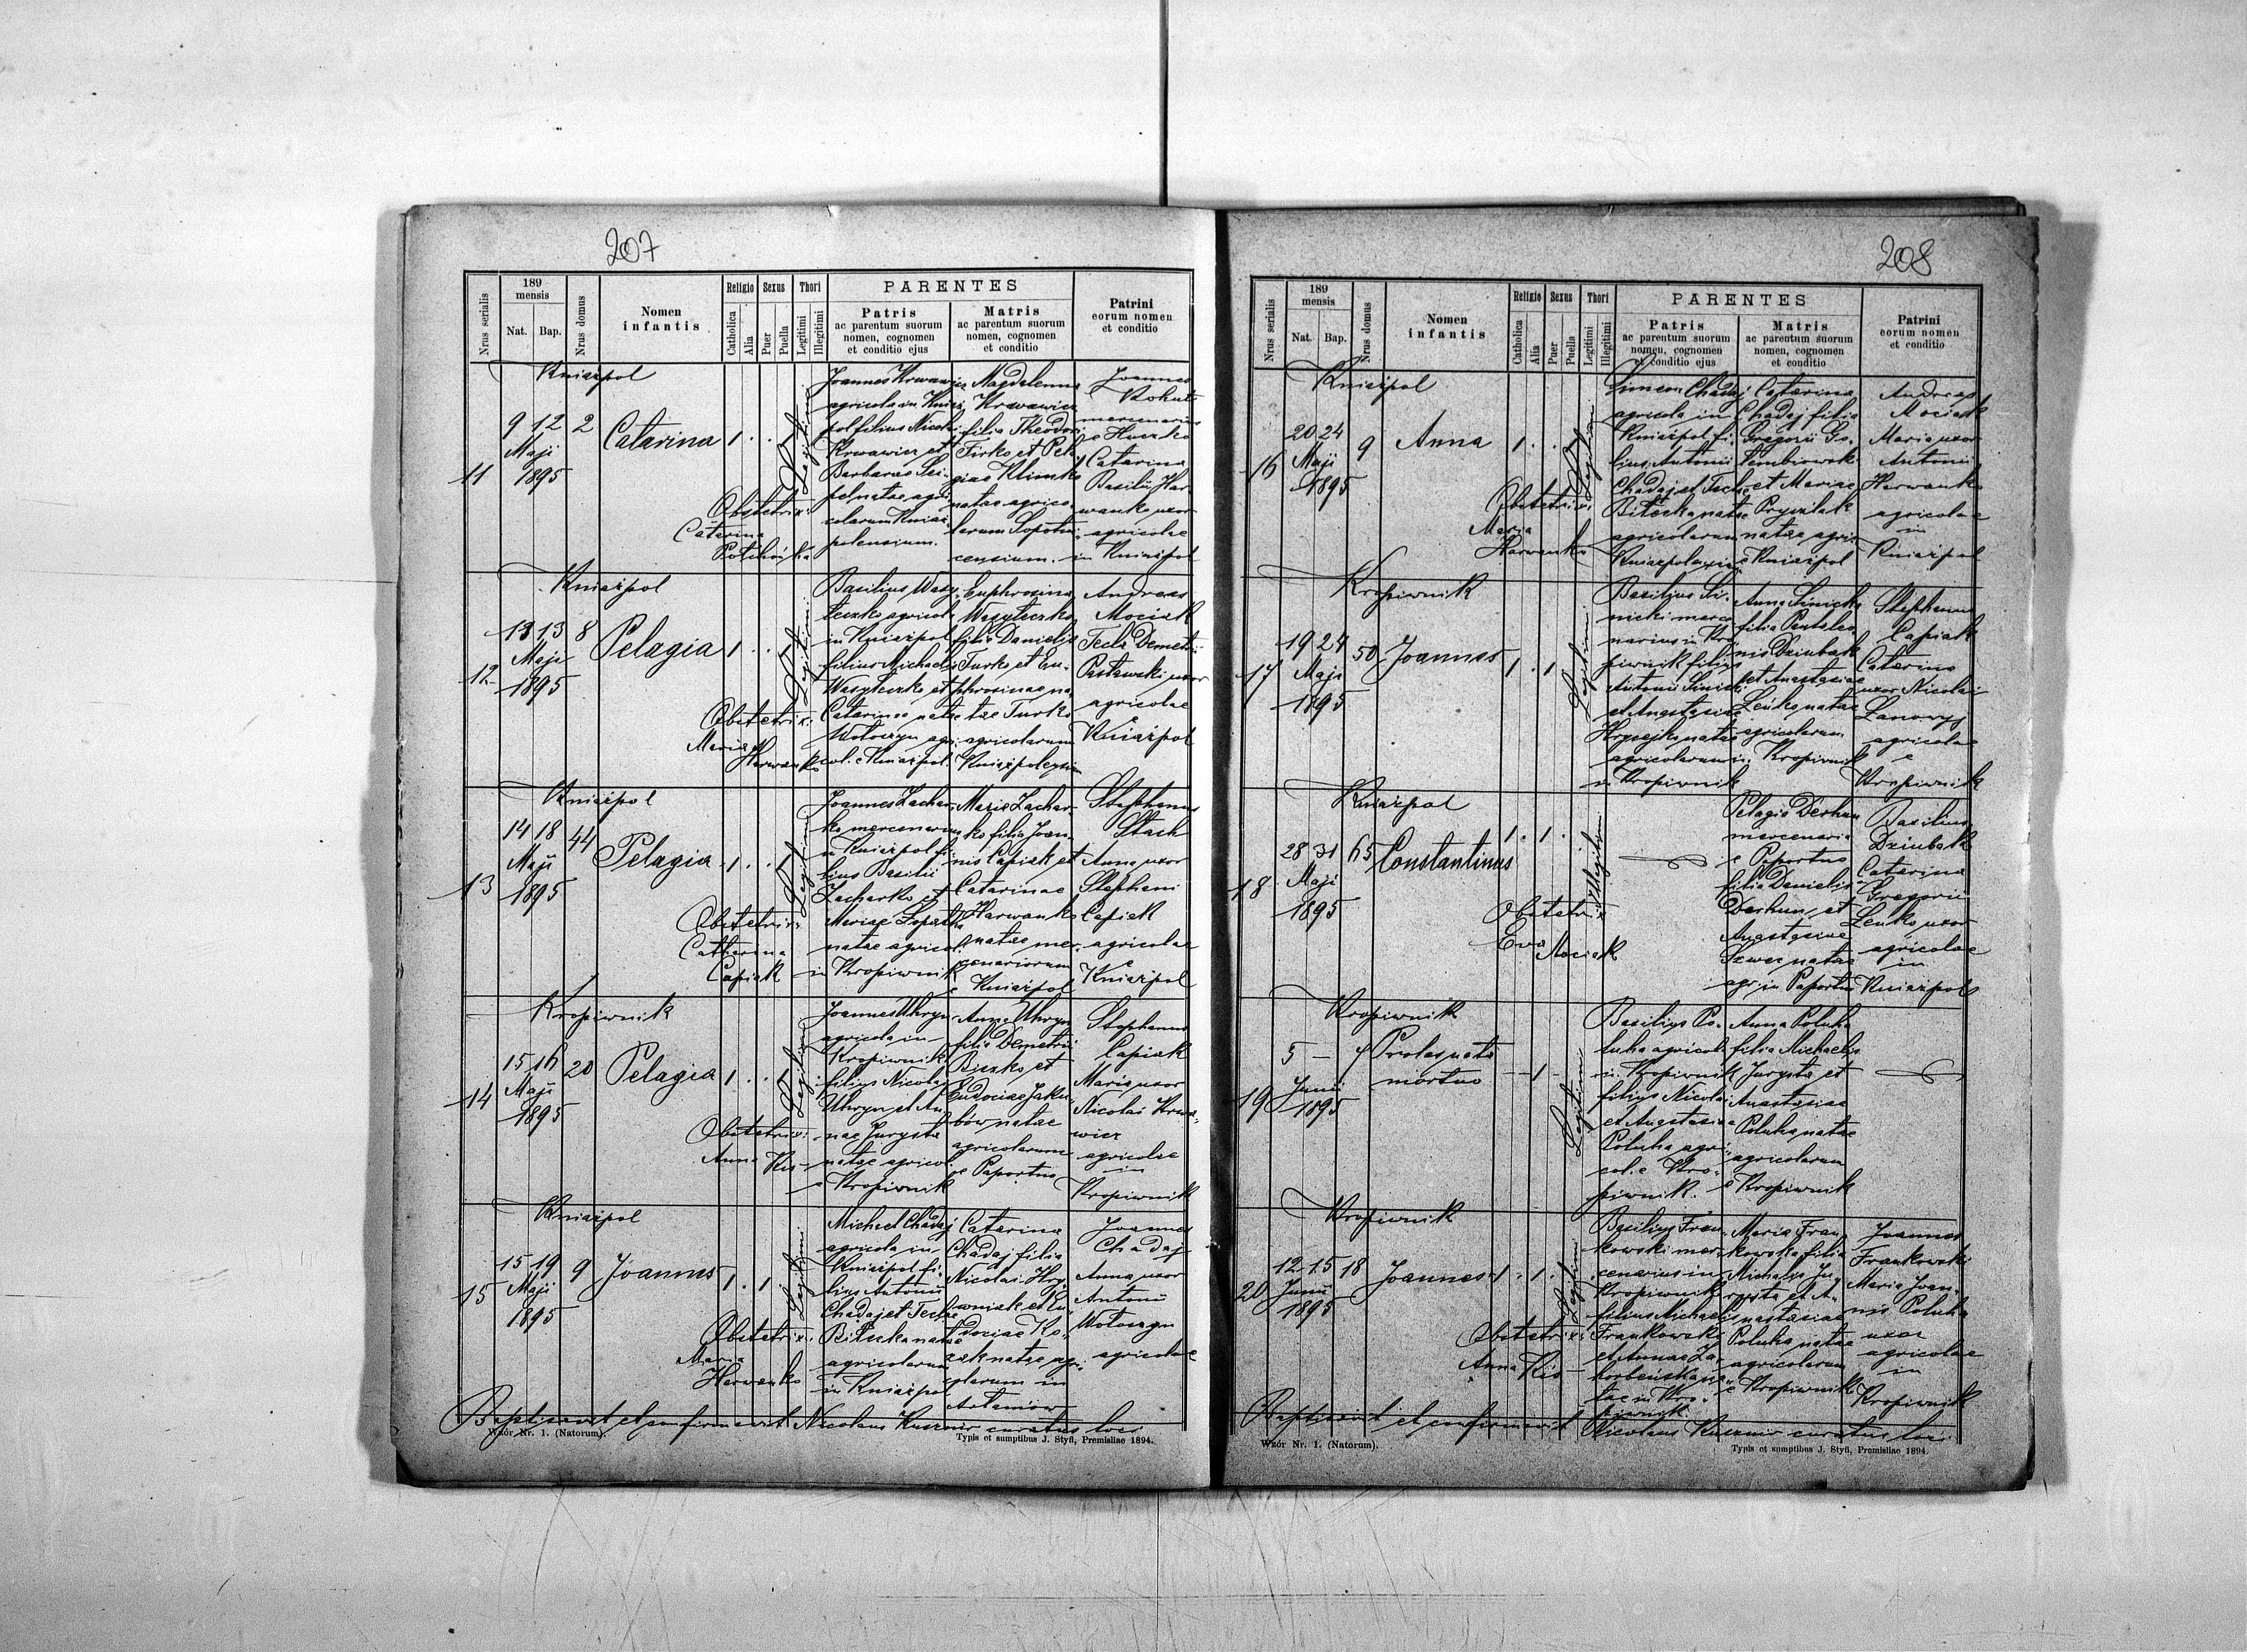 207
Nrus serialis
189
mensis
Nat.
Bap.
Nrus domus
Nomen
infantis
Religio
Catholica
Alia
Sexus
Puer
Puella
Thori
Legitimi
Illegitimi
PARENTES
Patris
ac parentum suorum
nomen, cognomen
et conditio ejus
Matris
ac parentum suorum
nomen, cognomen
et conditio
Patrini
eorum nomen
et conditio
Kniażpol
11
9 12
Maji
1895
2
Catarina
1
Legitimi
Obstetrix:
Catarina
Joannes Krwawicz
agricola in Kniaż-
pol filius Nicolai
Krwawicz et
Barbarae
natae agri-
colarum Kniaż-
polensium.
Magdalenna
Krwawicz
filia Theodori
Firko et Pela-
giae Klimko
natae agrico-
larum Sopotni-
censium.
Joannes
Kohut
mercenarius
Catarina
Basilii Har-
wanko uxor
agricolae
in Kniażpol
Kniażpol
12
13 13
Maji
1895
8
Pelagia
1
Legitimi
Obstetrix:
Maria
Harwanko
Basilius Wasy-
leczko agricola
in Kniażpol
filius Michaelis
Wasyleczko et
Catarinae natae
Wołoczyn agri-
col. e Kniażpol.
Euphrosina
Wasyleczko
filia Danielis
Turko et Eu-
phrosinae na-
tae Turko
agricolarum
Andreas
Mociak
Tecla Demetrii
Pastawski uxor
agricolae
Kniażpol
Kniażpol
13
14 18
Maji
1895
44
Pelagia
1
Legitimi
Obstetrix:
Catherina
Capiak
Joannes Zachar-
ko mercenarius
in Kniażpol fi-
lius Basilii
Zacharko et
Mariae Łopatka
natae agricol.
in Kropiwnik
Maria Zachar-
ko filia Joan-
nis Capiak et
Catarinae
Harwanko
natae mer-
cenariorum
e Kniażpol
Stephanus
Stach
Anna uxor
Stephani
Capiak
agricolae
e
Kniażpol
Kropiwnik
14
15 16
Maji
1895
20
Pelagia
1
Legitimi
Obstetrix:
Anna Kis
Joannes Uhryn
agricola in
Kropiwnik
filius Nicolai
Uhryn et An-
nae Jurysta
natae agricol.
e Kropiwnik
Anna Uhryn
filia Demetrii
Biszko et
Eudociae Jaku-
bów natae
agricolarum
e Paportno
Stephanus
Capiak
Maria uxor
Nicolai Krwa-
wicz
agricolae
in
Kropiwnik
Kniażpol
15
15 19
Maji
1895
9
Joannes
1 1
Legitimi
Obstetrix:
Maria
Harwanko
Michael Chadaj
agricola in
Kniażpol fi-
lius Antonii
Chadaj et Teclae
natae
agricolarum
in Kniażpol
Catarina
Chadaj filia
Nicolai Hry-
wniak et Eu-
dociae Ko-
zak natae agri-
colarum in
Joannes
Chadaj
Anna uxor
Antonii
Wołoczyn
agricolae
Baptisavit et confirmavit Nicolaus Kusznir curatus loci
Wzór Nr. 1. (Natorum).
Typis et sumptibus J. Styfi, Premisliae 1894.
208
Nrus serialis
189
mensis
Nat.
Bap.
Nrus domus
Nomen
infantis
Religio
Catholica
Alia
Sexus
Puer
Puella
Thori
Legitimi
Illegitimi
PARENTES
Patris
ac parentum suorum
nomen, cognomen
et conditio ejus
Matris
ac parentum suorum
nomen, cognomen
et conditio
Patrini
eorum nomen
et conditio
Kniażpol
16
20 24
Maji
1895
9
Anna
1
Legitimi
Obstetrix:
Maria
Harwanko
Simeon Chadaj
agricola in
Kniażpol fi-
lius Antonii
Chadaj et Teclae
natae
agricolarum
Catarina
Chadaj filia
Gregorii Go-
et Mariae
natae agric.
e Kniażpol
Andreas
Mociak
Maria uxor
Antonii
Harwanko
agricolae
in
Kniażpol
Kropiwnik
17
19 24
Maji
1895
50
Joannes
1 1
Legitimi
Basilius Si-
nicki merce-
narius in Kro-
piwnik filius
Antonii Sinicki
et Anastasiae
natae
agricolarum
in Kropiwnik
Anna Sinicka
filia Pantaleo-
nis Dziubak
et Anastasiae
Leńko natae
agricolarum
in Kropiwnik
Stephanus
Capiak
Catarina
uxor Nicolai
Zanowyj
agricolae
e
Kropiwnik
Kniażpol
18
28 31
Maji
1895
65
Constantinus
1 1
Illegitimi
Obstetrix
Eva
Mociak
Pelagia Derhun
mercenaria
e Paportno
filia Danielis
Derhun et
Anastasiae
Szwec natae
agr. in Paportno
Basilius
Dziubak
Catarina
Gregorii
Leńko uxor
agricolae
in
Kniażpol
Kropiwnik
19
5 -
Junii
1895
Proles nata
mortuo
1
Legitimi
Basilius Po-
luha agricola
in Kropiwnik
filius Nicolai
et Anastasiae
Poluha agri-
col. e Kro-
piwnik.
Anna Poluha
filia Michaelis
Jurysta et
Anastasiae
Poluha natae
agricolarum
e Kropiwnik
Kropiwnik
20
12 15
Junii
1895
18
Joannes
1 1
Legitimi
Obstetrix:
Anna Kis
Basilius Fran-
kowski mer-
cenarius in
Kropiwnik
filius Michaelis
Frankowski
et Annae Za-
na-
tae in Kro-
piwnik.
Maria Fran-
kowska filia
Michaelis Ju-
rysta et A-
nastasiae
Poluha natae
agricolarum
e Kropiwnik
Joannes
Frankowski
Maria Joan-
nis Poluha
uxor
agricolae
in
Kropiwnik
Baptisavit et confirmavit Nicolaus Kusznir curatus loci
Wzór Nr. 1. (Natorum).
Typis et sumptibus J. Styfi, Premisliae 1894.